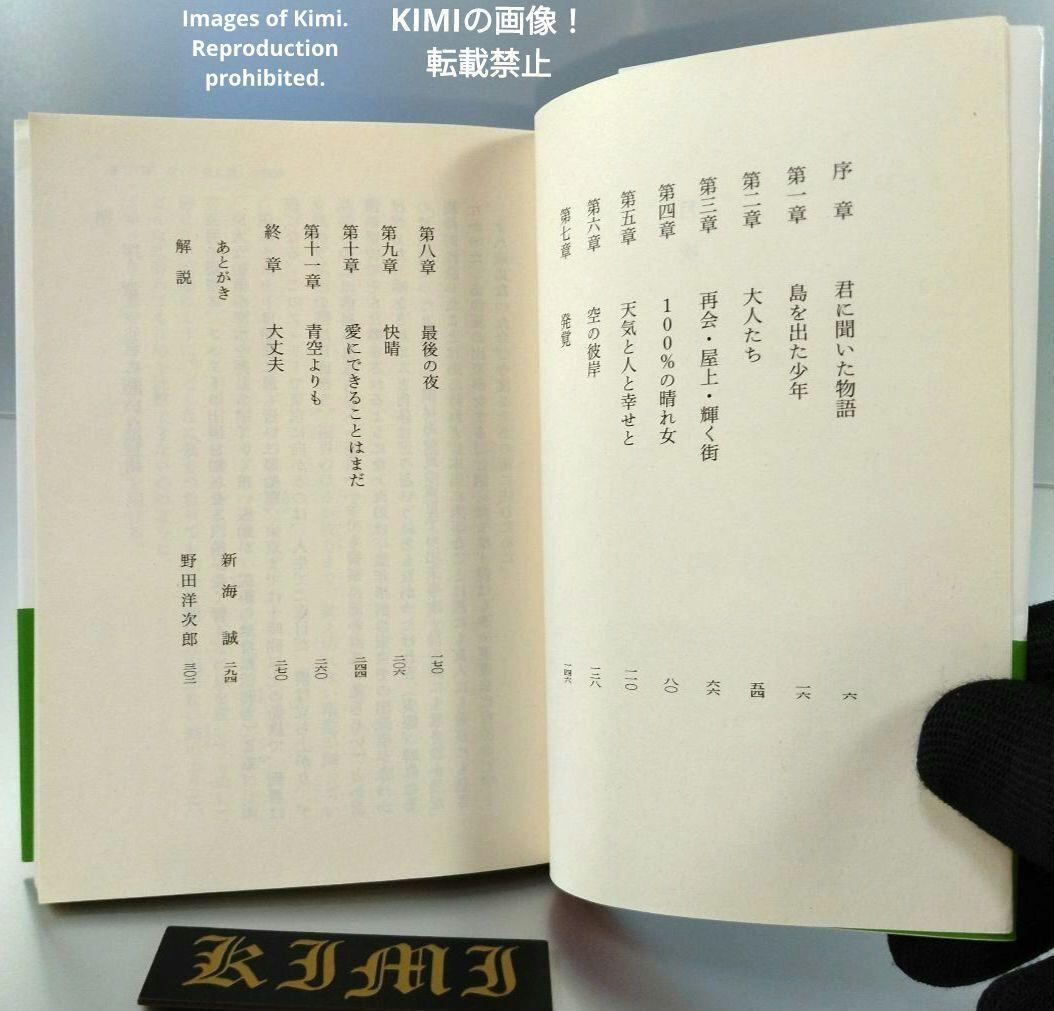 Images of Kimi.
Reproduction
prohibited.
KIMIの画像！
転載禁止
序章 君に聞いた物語 六
第一章 島を出た少年 一六
第二章 大人たち 五四
第三章 再会・屋上・輝く街 六六
第四章 100%の晴れ女 八〇
第五章 天気と人と幸せと 一一〇
第六章 空の彼岸 一二八
第七章 発覚 一四六
第八章 最後の夜 一七〇
第九章 快晴 二〇六
第十章 愛にできることはまだ 二四四
第十一章 青空よりも 二六〇
終章 大丈夫 二七〇
あとがき 新海誠 二九四
解説 野田洋次郎 三〇二
KIMI